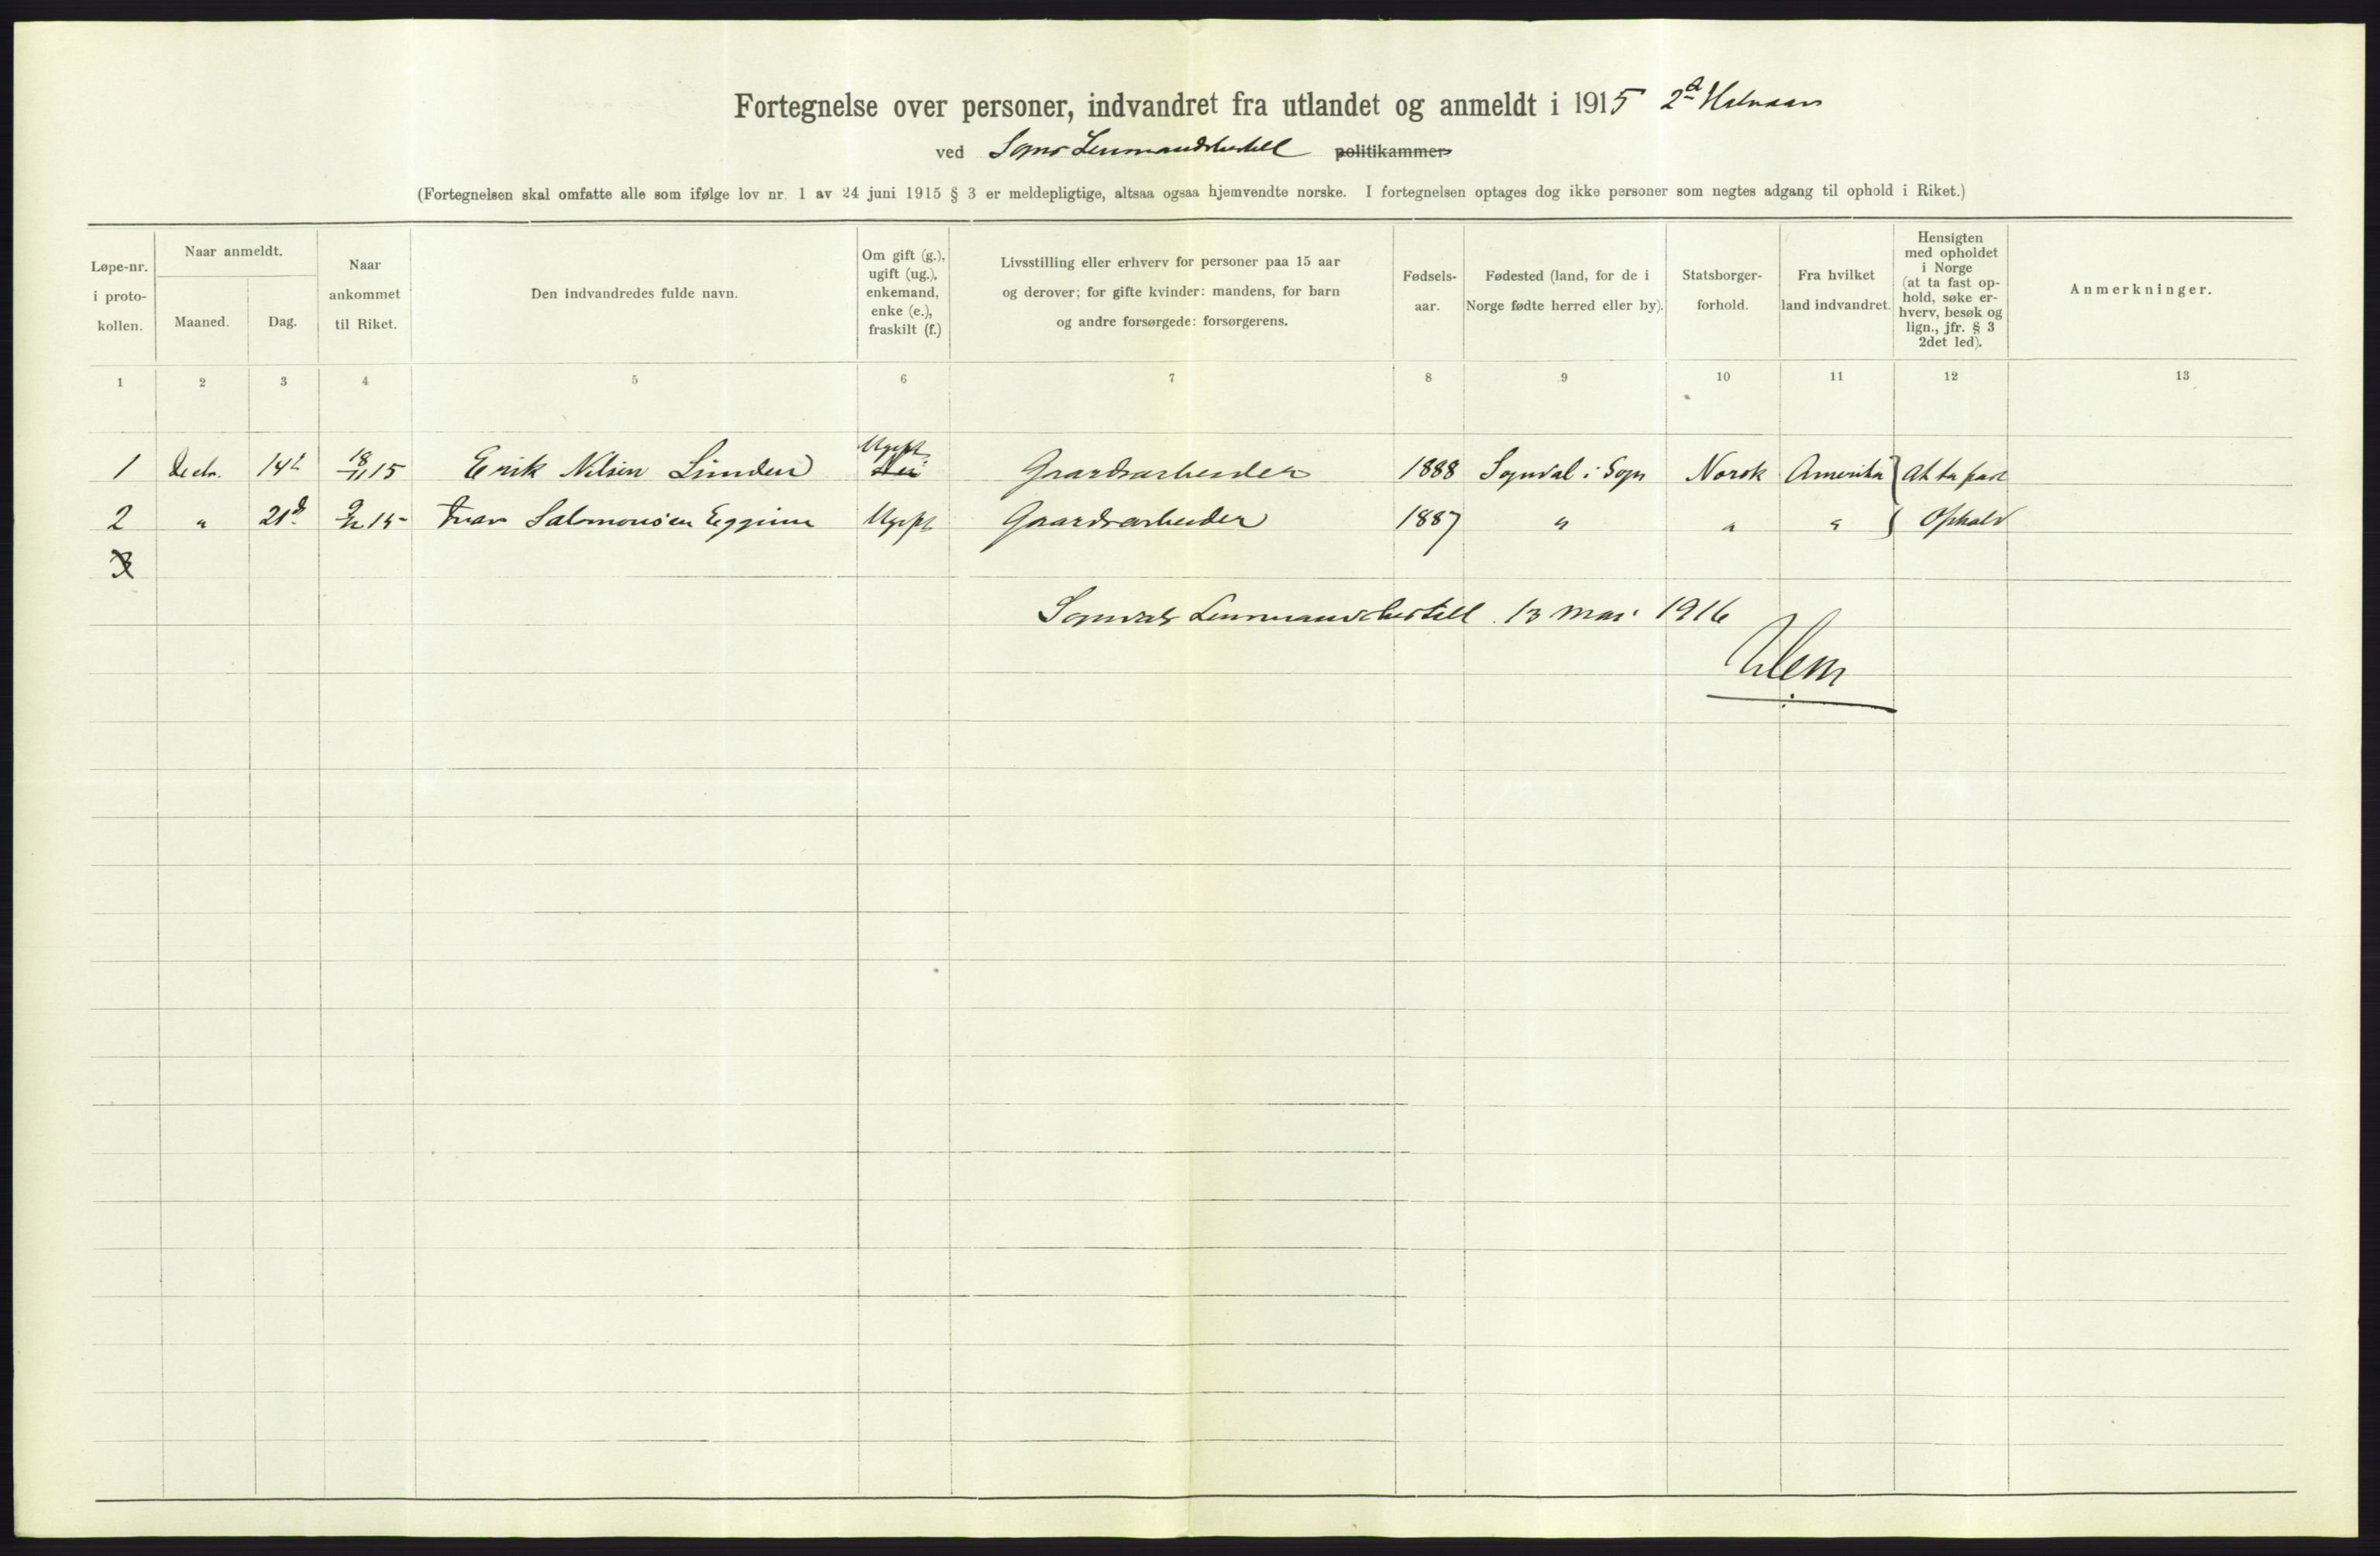 Fortegnelse over personer, indvandret fra utlandet og anmeldt i 1915 2d Halvaar
ved Lensmandsbestill politikammer
(Fortegnelsen skal omfatte alle som ifølge lov nr. 1 av 24 juni 1915 § 3 er meldepligtige, altsaa ogsaa hjemvendte norske. I fortegnelsen optages dog ikke personer som negtes adgang til ophold i Riket.)
Løpe-nr. i proto- kollen.
Naar anmeldt.
Maaned.
Dag.
Naar ankommet til Riket.
Den indvandredes fulde navn.
Om gift (g.), ugift (ug.), enkemand, enke (e.), fraskilt (f.)
Livsstilling eller erhverv for personer paa 15 aar
og derover; for gifte kvinder: mandens, for barn
og andre forsørgede: forsørgerens.
Fødsels- aar.
Fødested (land, for de i
Norge fødte herred eller by).
Statsborger- forhold.
Fra hvilket land indvandret.
Hensigten
med opholdet
i Norge
(at ta fast op-
hold, søke er-
hverv, besøk og
lign., jfr. § 3
2det led).
Anmerkninger.
1 2 3 4 5 6 7 8 9 10 11 12 13
1 Decbr. 14d 18/11 15 Erik Nilsen Ugift Gaardsarbeider 1888 Sogndal i Sogn Norsk Amerika At ta fast
2 " 21d 9/12 15 Ivar Salomonsen Ugift Gaardsarbeider 1887 " " " Ophold
3
Sogndals Lensmandsbestill 13 mai 1916